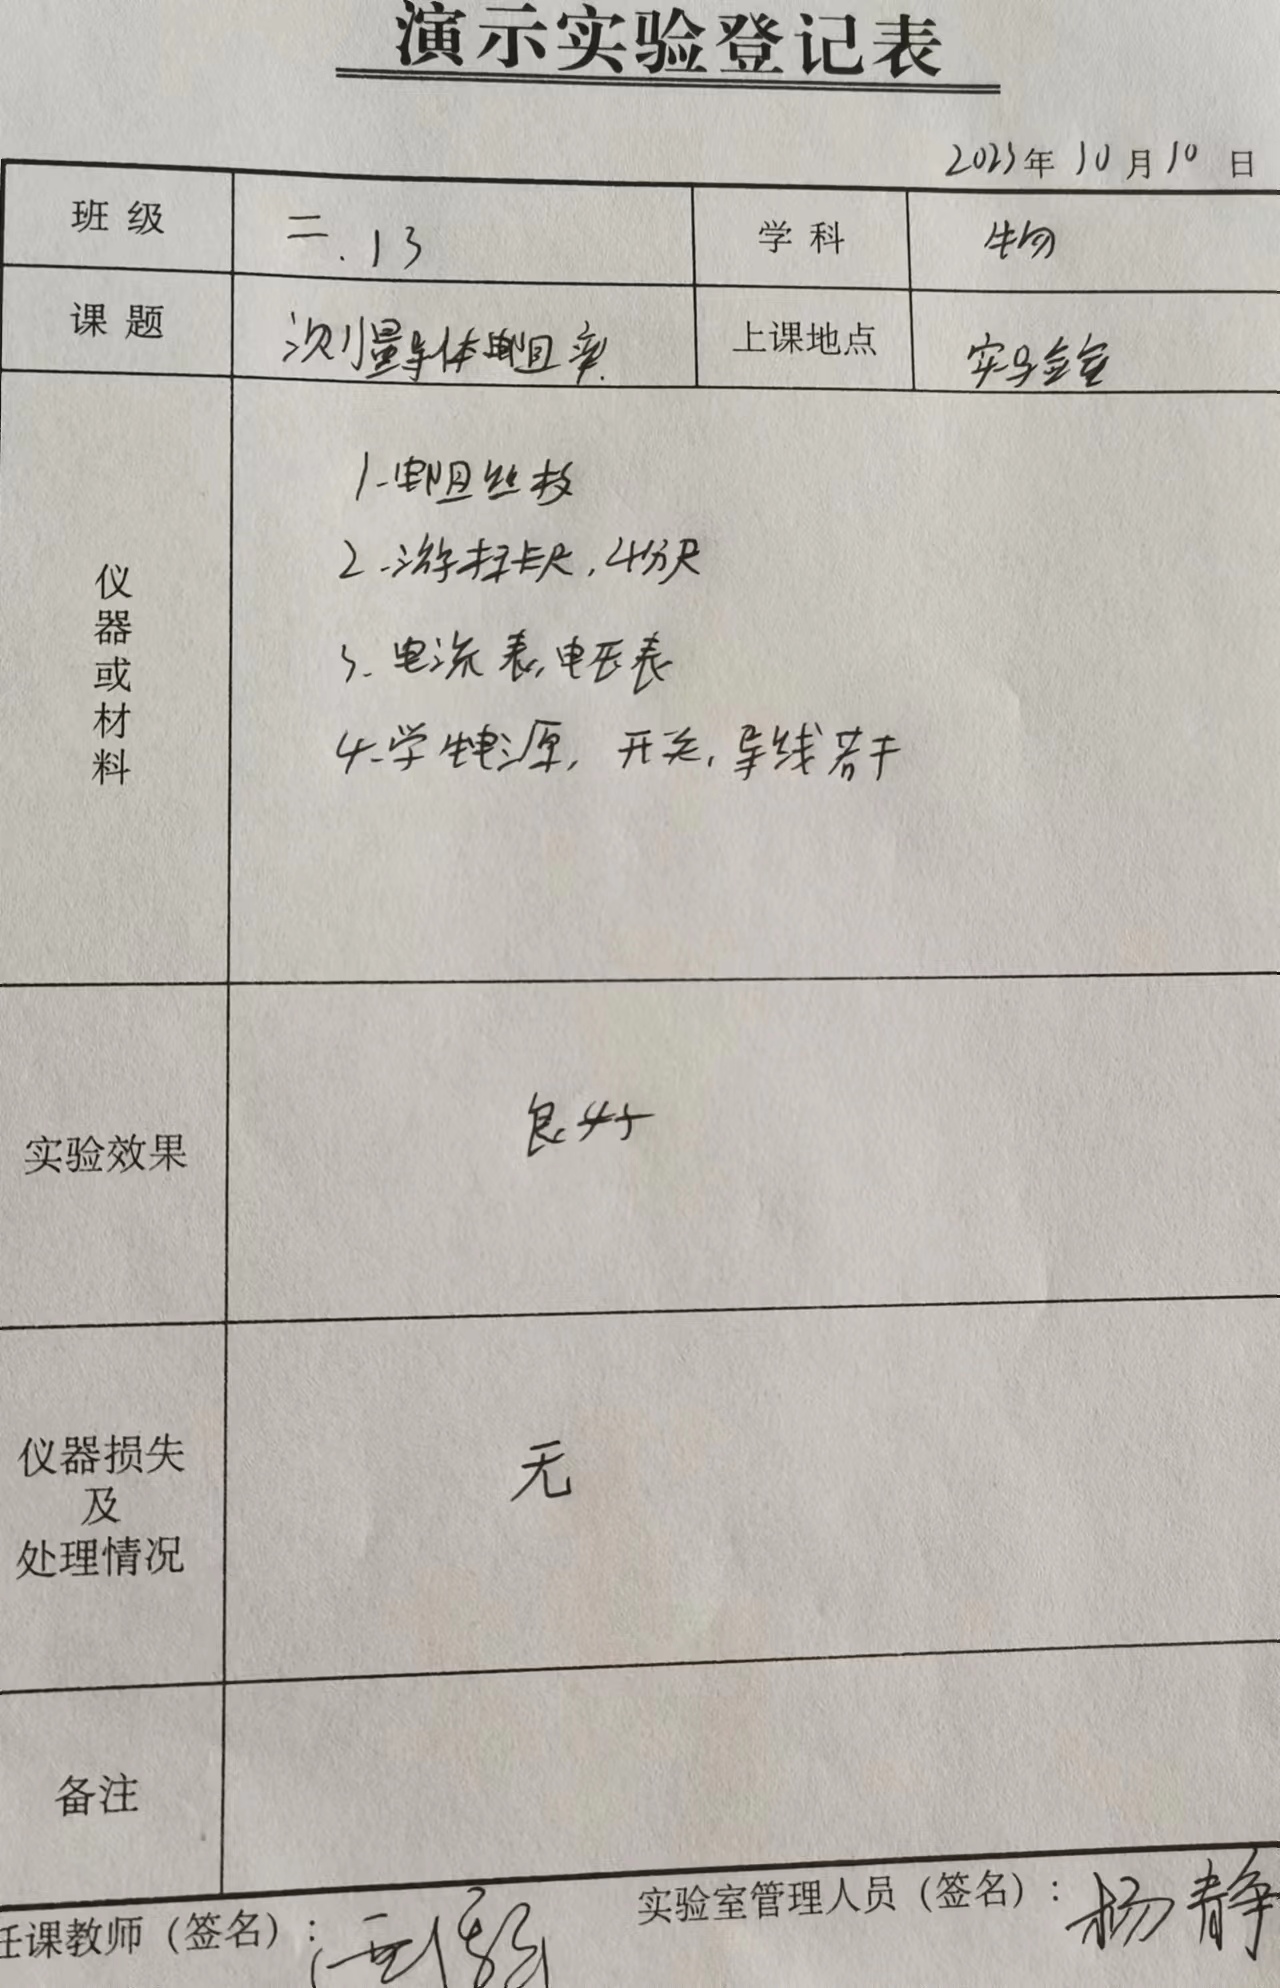 演示实验登记表
2023年10月10日
班级 二.13 学科 生物
课题 测量导体电阻率 上课地点 实验室
仪器或材料
1.电阻丝板
2.游标卡尺,千分尺
3.电流表,电压表
4.学生电源,开关,导线若干
实验效果 良好
仪器损失
及
处理情况
无
备注
任课教师（签名）：
实验室管理人员（签名）：杨静